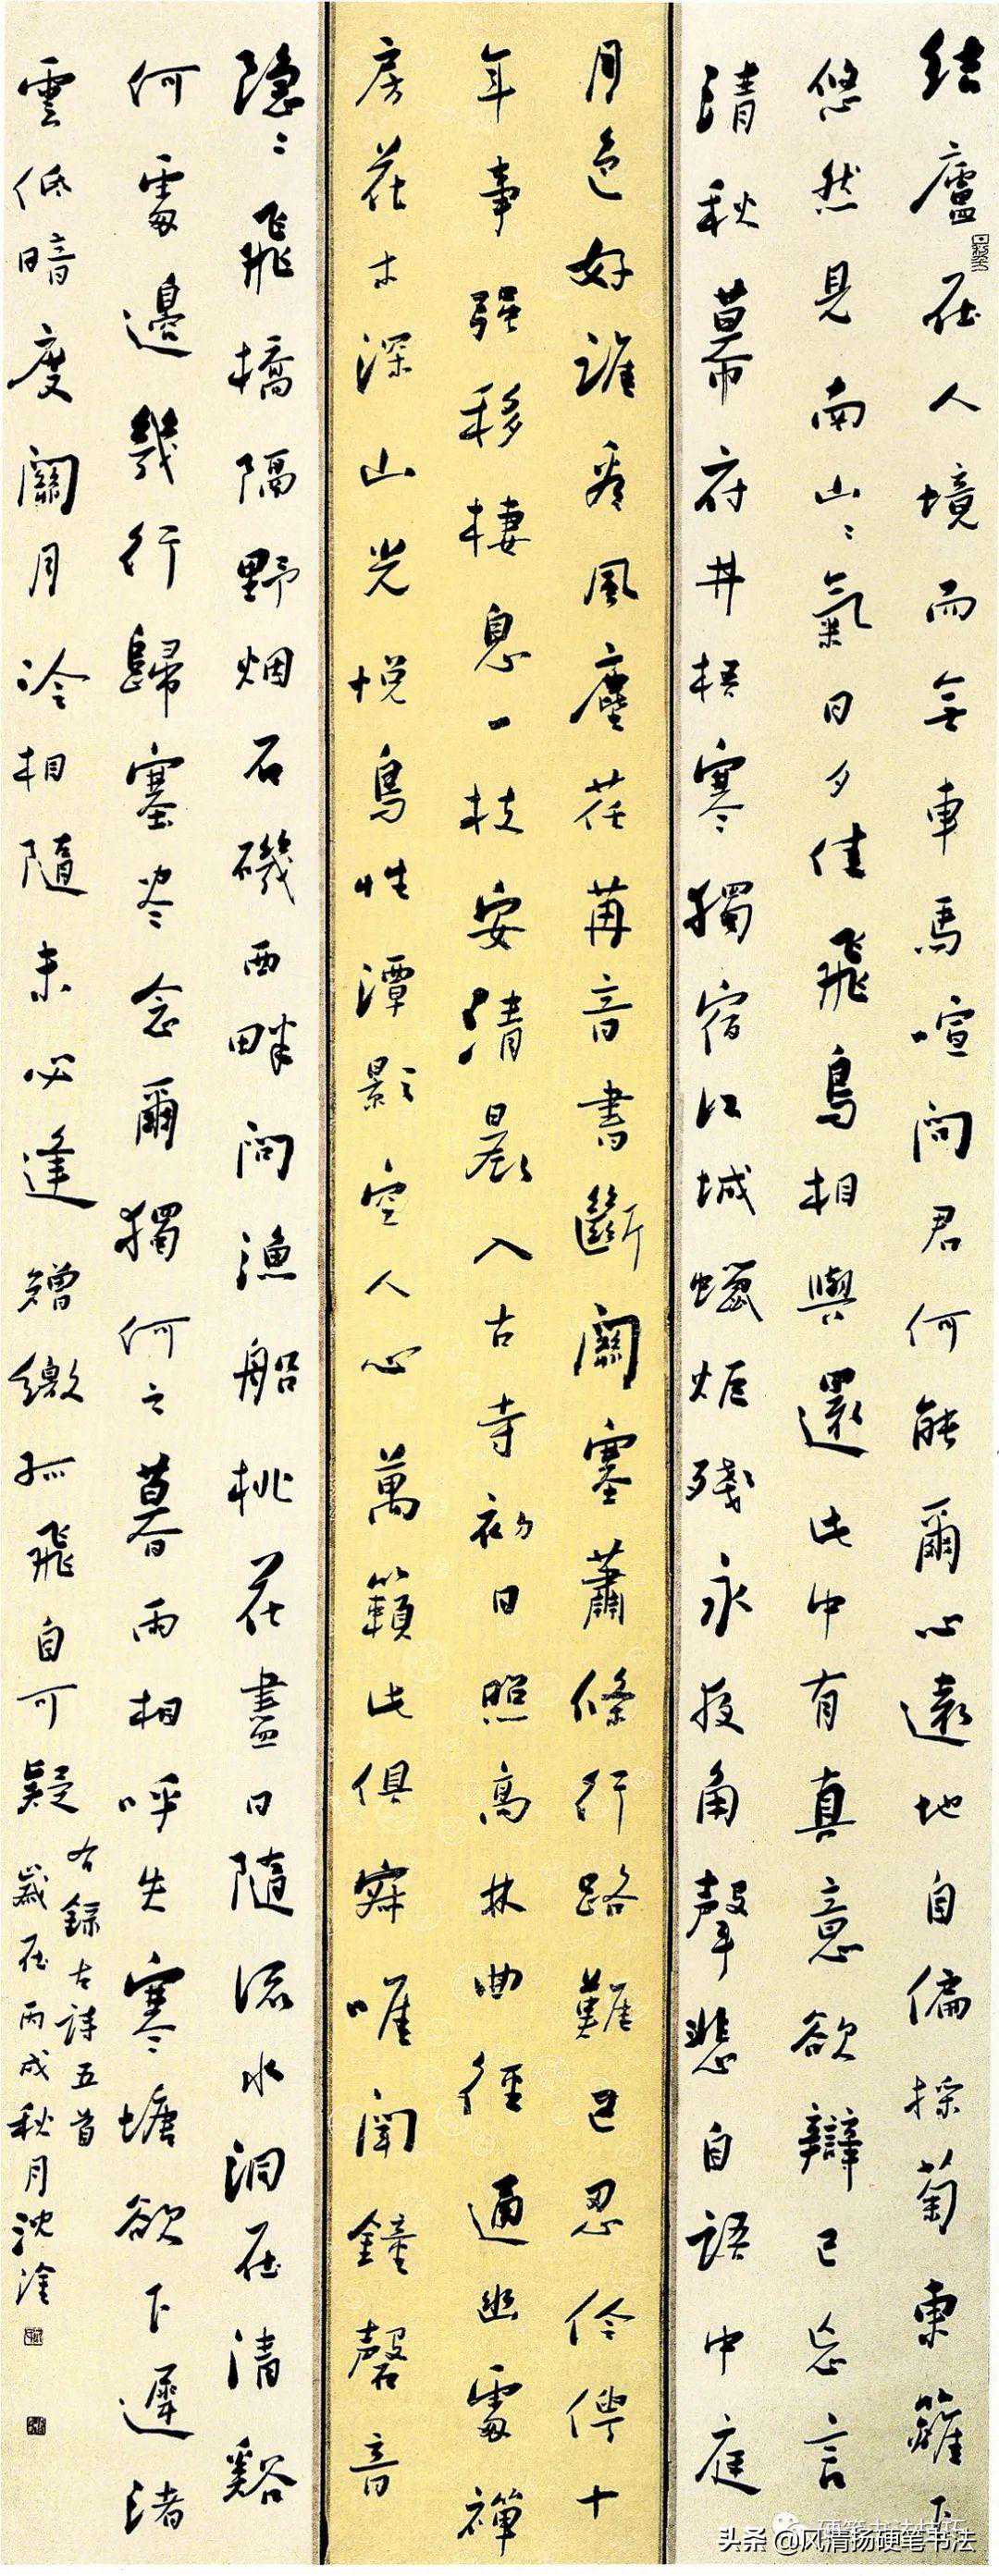 结廬在人境而無車馬喧问君何能爾心遠地自偏採菊東籬下
悠然見南山〻氣日夕佳飛鳥相與還此中有真意欲辯已忘言
清秋幕府井梧寒獨宿江城蠟炬殘永夜角聲悲自語中庭
月色好誰看風塵荏苒音書斷關塞蕭條行路難已忍伶俜十
年事强移棲息一枝安清晨入古寺初日照高林曲徑通幽處禪
房花木深山光悦鳥性潭影空人心萬籟此俱寂唯聞鐘磬音
隐〻飛橋隔野烟石磯西畔问漁船桃花盡日隨流水洞在清谿
何處邊幾行歸塞盡念爾獨何之暮雨相呼失寒塘欲下遲渚
雲低暗度關月冷相隨未必逢矰繳孤飛自可疑
右録古詩五首
歲在丙戌秋月沈淦
头条 @风清扬硬笔书法